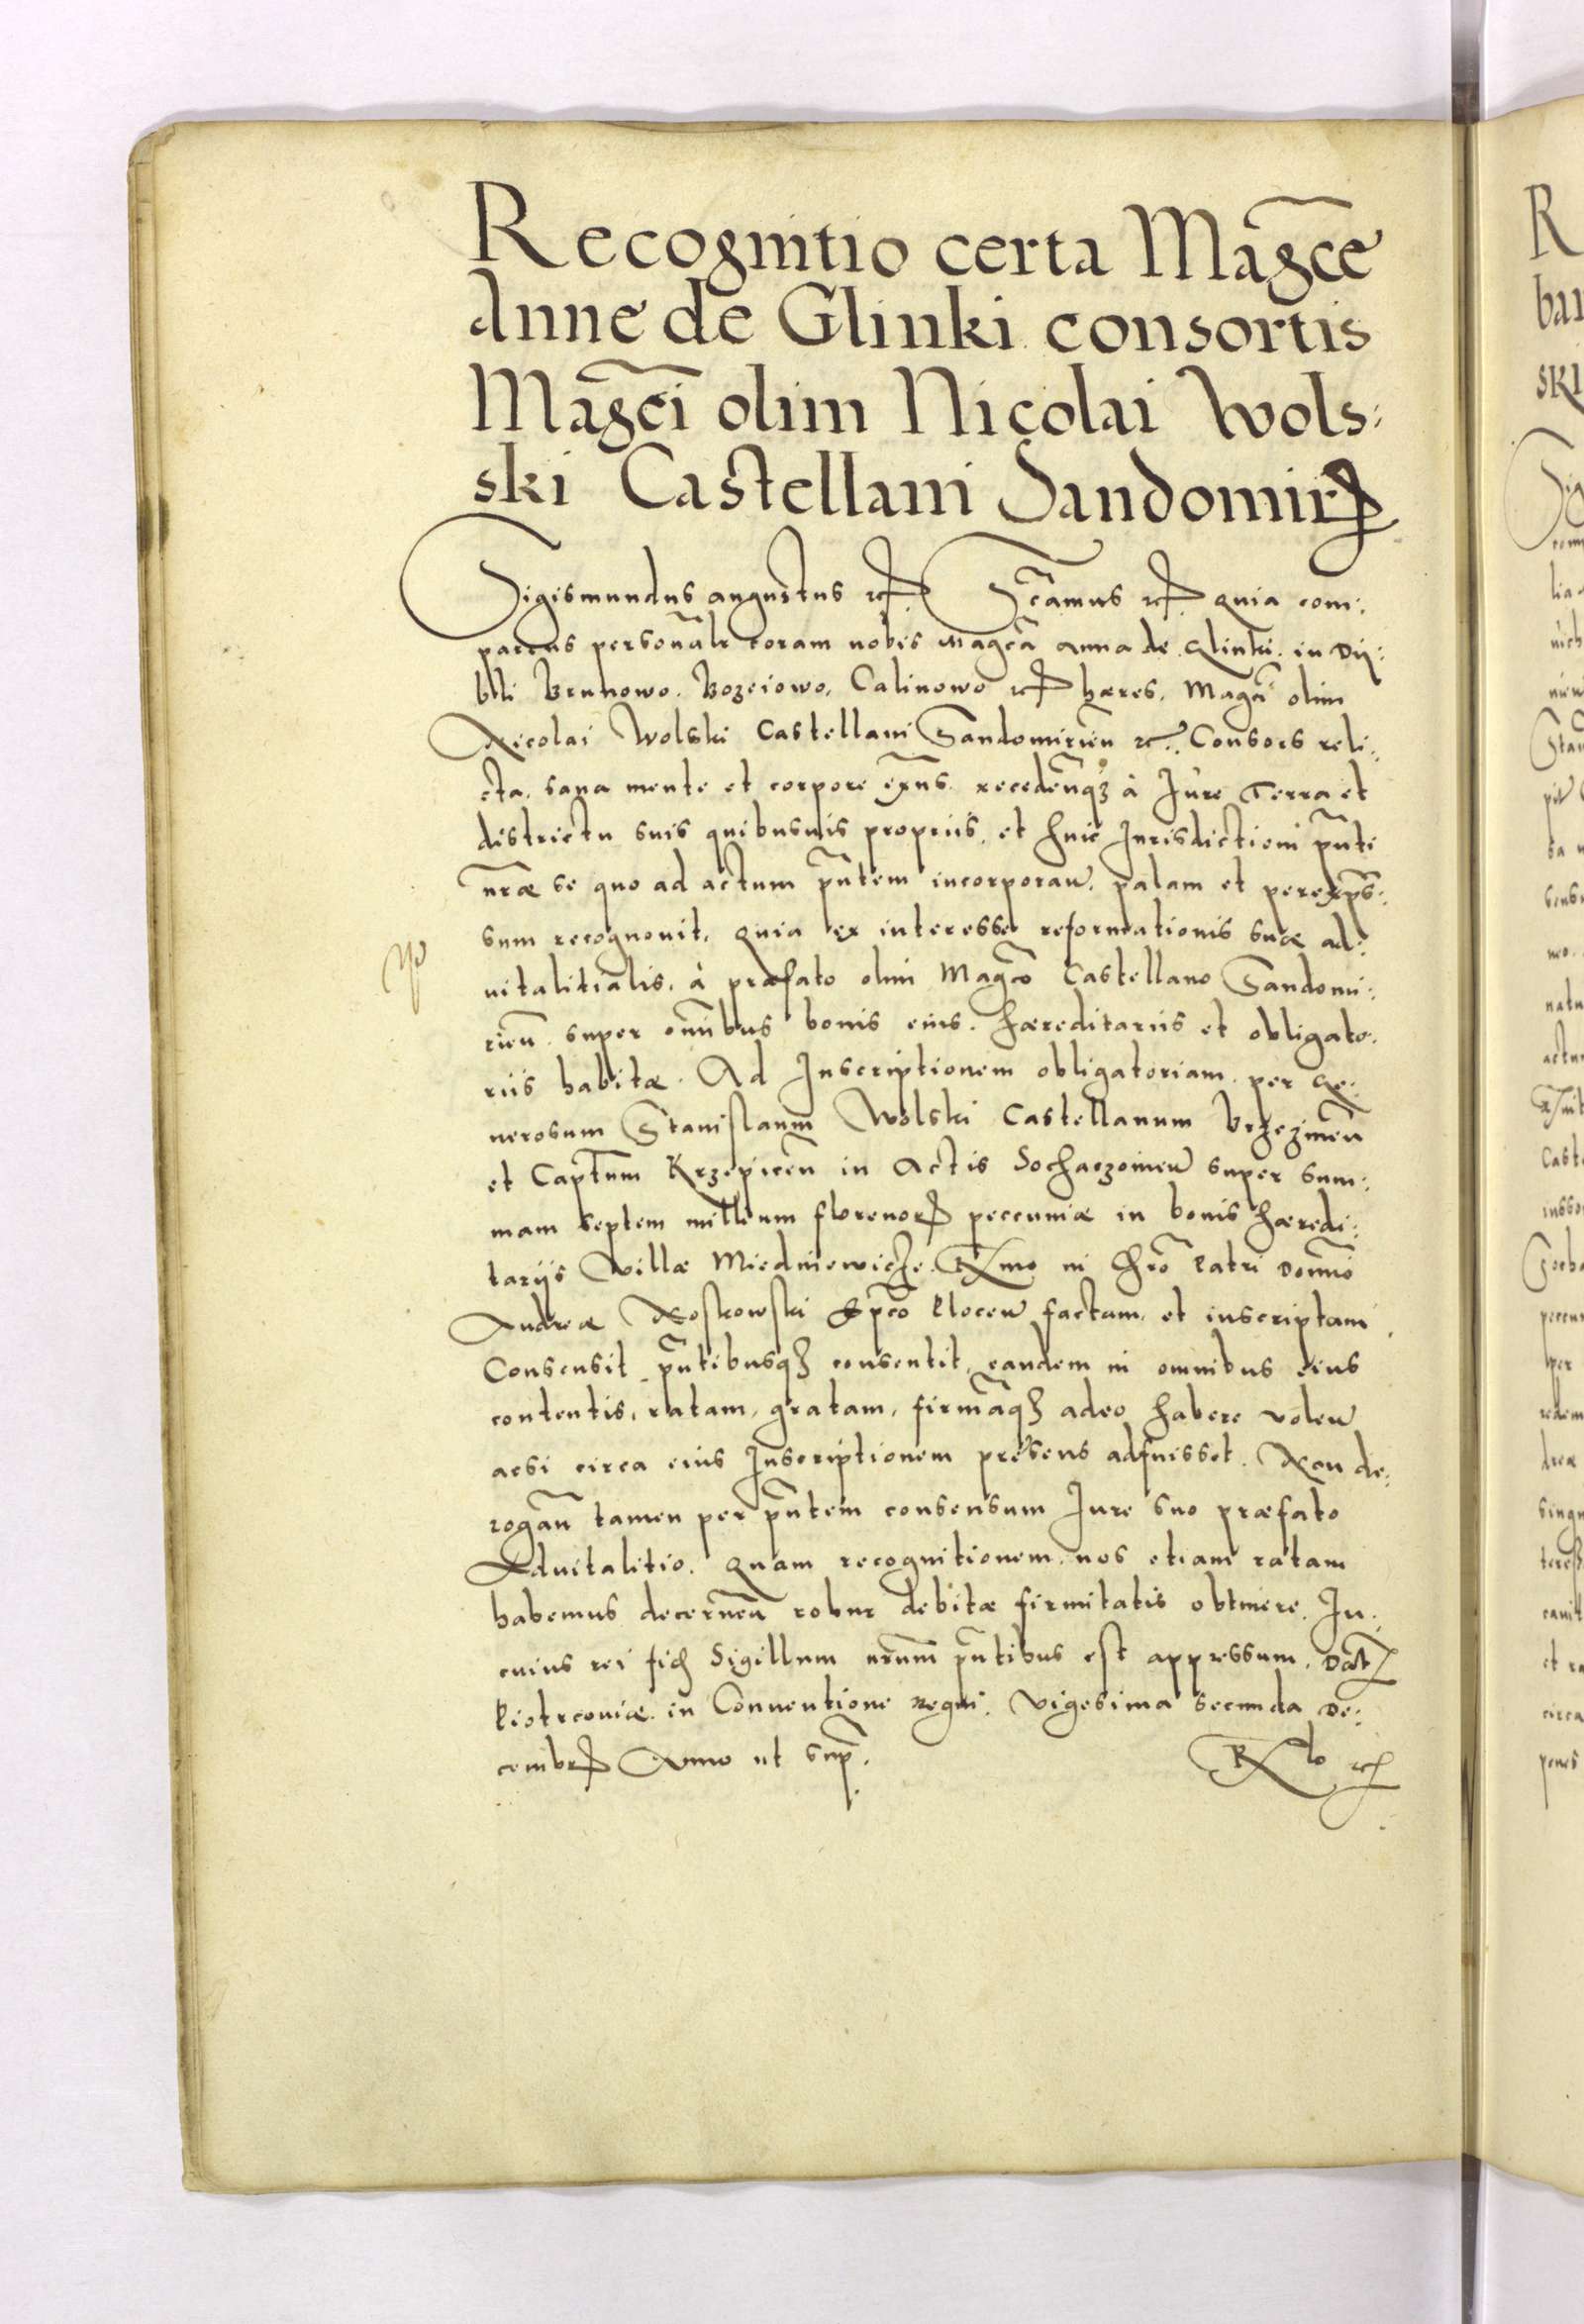 Recognitio certa Magc̃e
Anne de Glinki consortis
Magc̃i olim Nicolai Wols:
ski Castellani Sandomir
Sigismundus augustus etc. Sc̃amus etc. quia com:
parens personalr coram nobis Magc̃a anna de Glinki. in
Brunowo. Bozeiowo. Calinowo etc. hæres. Magc̃i olim
Nicolai Wolski Castellani Sandomirieñ etc. Consors reli:
cta. sana mente et corpore exñs. recedeñqȝ à Jure Terra et
districtu suis quibusuis propriis. et huic Jurisdictioni pñti
nr̃æ se quo ad actum pñtem incorporañ. palam et perexp̃s:
sum recognouit. quia ex interesse reformationis suæ ad:
uitalitialis. à præfato olim Magc̃o Castellano Sandomi:
rieñ. super om̃ibus bonis eius. hæreditariis et obligato.
riis habitæ. Ad Inscriptionem obligatoriam. per Ge:
nerosum Stanislaum Wolski Castellanum Brzezineñ
et Capt̃um Krzepiceñ in Actis Sochaczouieñ super sum:
mam septem millium florenor peccuniæ in bonis hæredi:
tarijs Villæ Miedniewicze. Rmo in Chr̃o Patri Domño
Andreæ Noskowski Ep̃co Ploceñ factam. et inscriptam
Consensit pñtibusqȝ consentit. eandem in omnibus eius
contentis. ratam. gratam. firmãqȝ adeo habere voleñ
acsi circa eius Inscriptionem presens adfuisset. Non de:
rogañ tamen per pñtem consensum Jure suo præfato
Aduitalitio. Quam recognitionem. nos etiam ratam
habemus decerneñ robur debitæ firmitatis obtinere. In
cuius rei fid Sigillum nr̃um pñtibus est appressum. Dat
Piotrcouiæ. in Conuentione Regni. Vigesima secunda De:
cembr Anno ut sup̃.